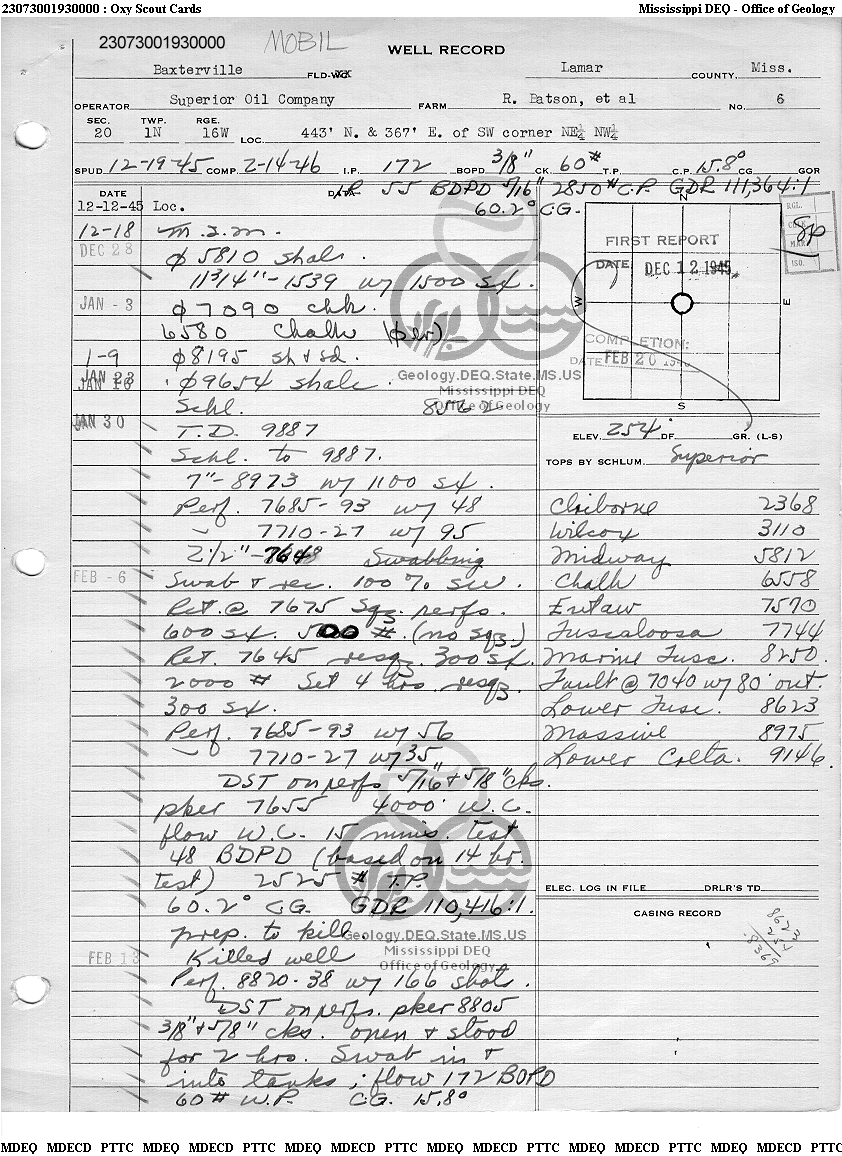 23073001930000 : Oxy Scout Cards Mississippi DEQ - Office of Geology
23073001930000 MOBIL
WELL RECORD
Baxterville FLD- Lamar COUNTY, Miss.
OPERATOR Superior Oil Company FARM R. Batson, et al No. 6
SEC. TWP. RGE.
20 1N 16W LOC. 443' N. & 367' E. of SW corner NE¼ NW¼
SPUD. 12-19-45 COMP. 2-14-46 I.P. 172 BOPD 3/8" CK. 60# T.P. C.P. 15.8° CG GOR
DATE 55 BDPD 5/16" 2850# C.P. GDR 111,364:1
12-12-45 Loc. 60.2° C.G.
12-18 M.I.M.
DEC 28 φ 5810 shale.
11 3/4"-1539 w/ 1500 sx.
JAN - 3 φ 7090 chk
6580 Chalk
1-9 φ 8195 sh & sd.
JAN 23
JAN 16 φ 9654 shale.
Schl. 8562
JAN 30 T.D. 9887
Schl. to 9887.
7"-8973 w/ 1100 sx.
Perf. 7685-93 w/ 48
7710-27 w/ 95
2 1/2"-7648 Swabbing
FEB - 6 Swab & rec. 100% sw.
Ret. @ 7675 Sqz perfs.
600 sx. 500 #. (no sqz)
Ret. 7645 resqz. 300 sx.
2000 # Set 4 hrs. resqz.
300 sx.
Perf. 7685-93 w/ 56
7710-27 w/ 35
DST on perfs 5/16" & 5/8" cks.
pker 7655 4000' W.C.
flow W.C. 15 mins. test
48 BDPD (based on 14 hr.
test) 2525 # T.P.
60.2° CG. GDR 110,416:1.
prep. to kill.
FEB 13 Killed well
Perf. 8820-38 w/ 166 shots.
DST on perfs. pker 8805
3/8" & 5/8" cks. open & stood
for 2 hrs. Swab in &
into tanks; flow 172 BOPD
60# W.P. CG. 15.8°
N
W E
S
FIRST REPORT
DATE DEC 12 1945
COMPLETION:
DATE FEB 20 1946
RGL.
CHK.
MAP
ISO.
Sp
Geology.DEQ.State.MS.US
Mississippi DEQ
Office of Geology
ELEV. 254 DF. GR. (L-S)
TOPS BY SCHLUM. Superior
Claiborne 2368
Wilcox 3110
Midway 5812
Chalk 6558
Eutaw 7570
Tuscaloosa 7744
Marine Tusc. 8250.
Fault @ 7040 w/ 80' out.
Lower Tusc. 8623
Massive 8975
Lower Creta. 9146.
ELEC. LOG IN FILE DRLR'S TD
CASING RECORD
8623
254
8369
Geology.DEQ.State.MS.US
Mississippi DEQ
Office of Geology
MDEQ MDECD PTTC MDEQ MDECD PTTC MDEQ MDECD PTTC MDEQ MDECD PTTC MDEQ MDECD PTTC MDEQ MDECD PTTC